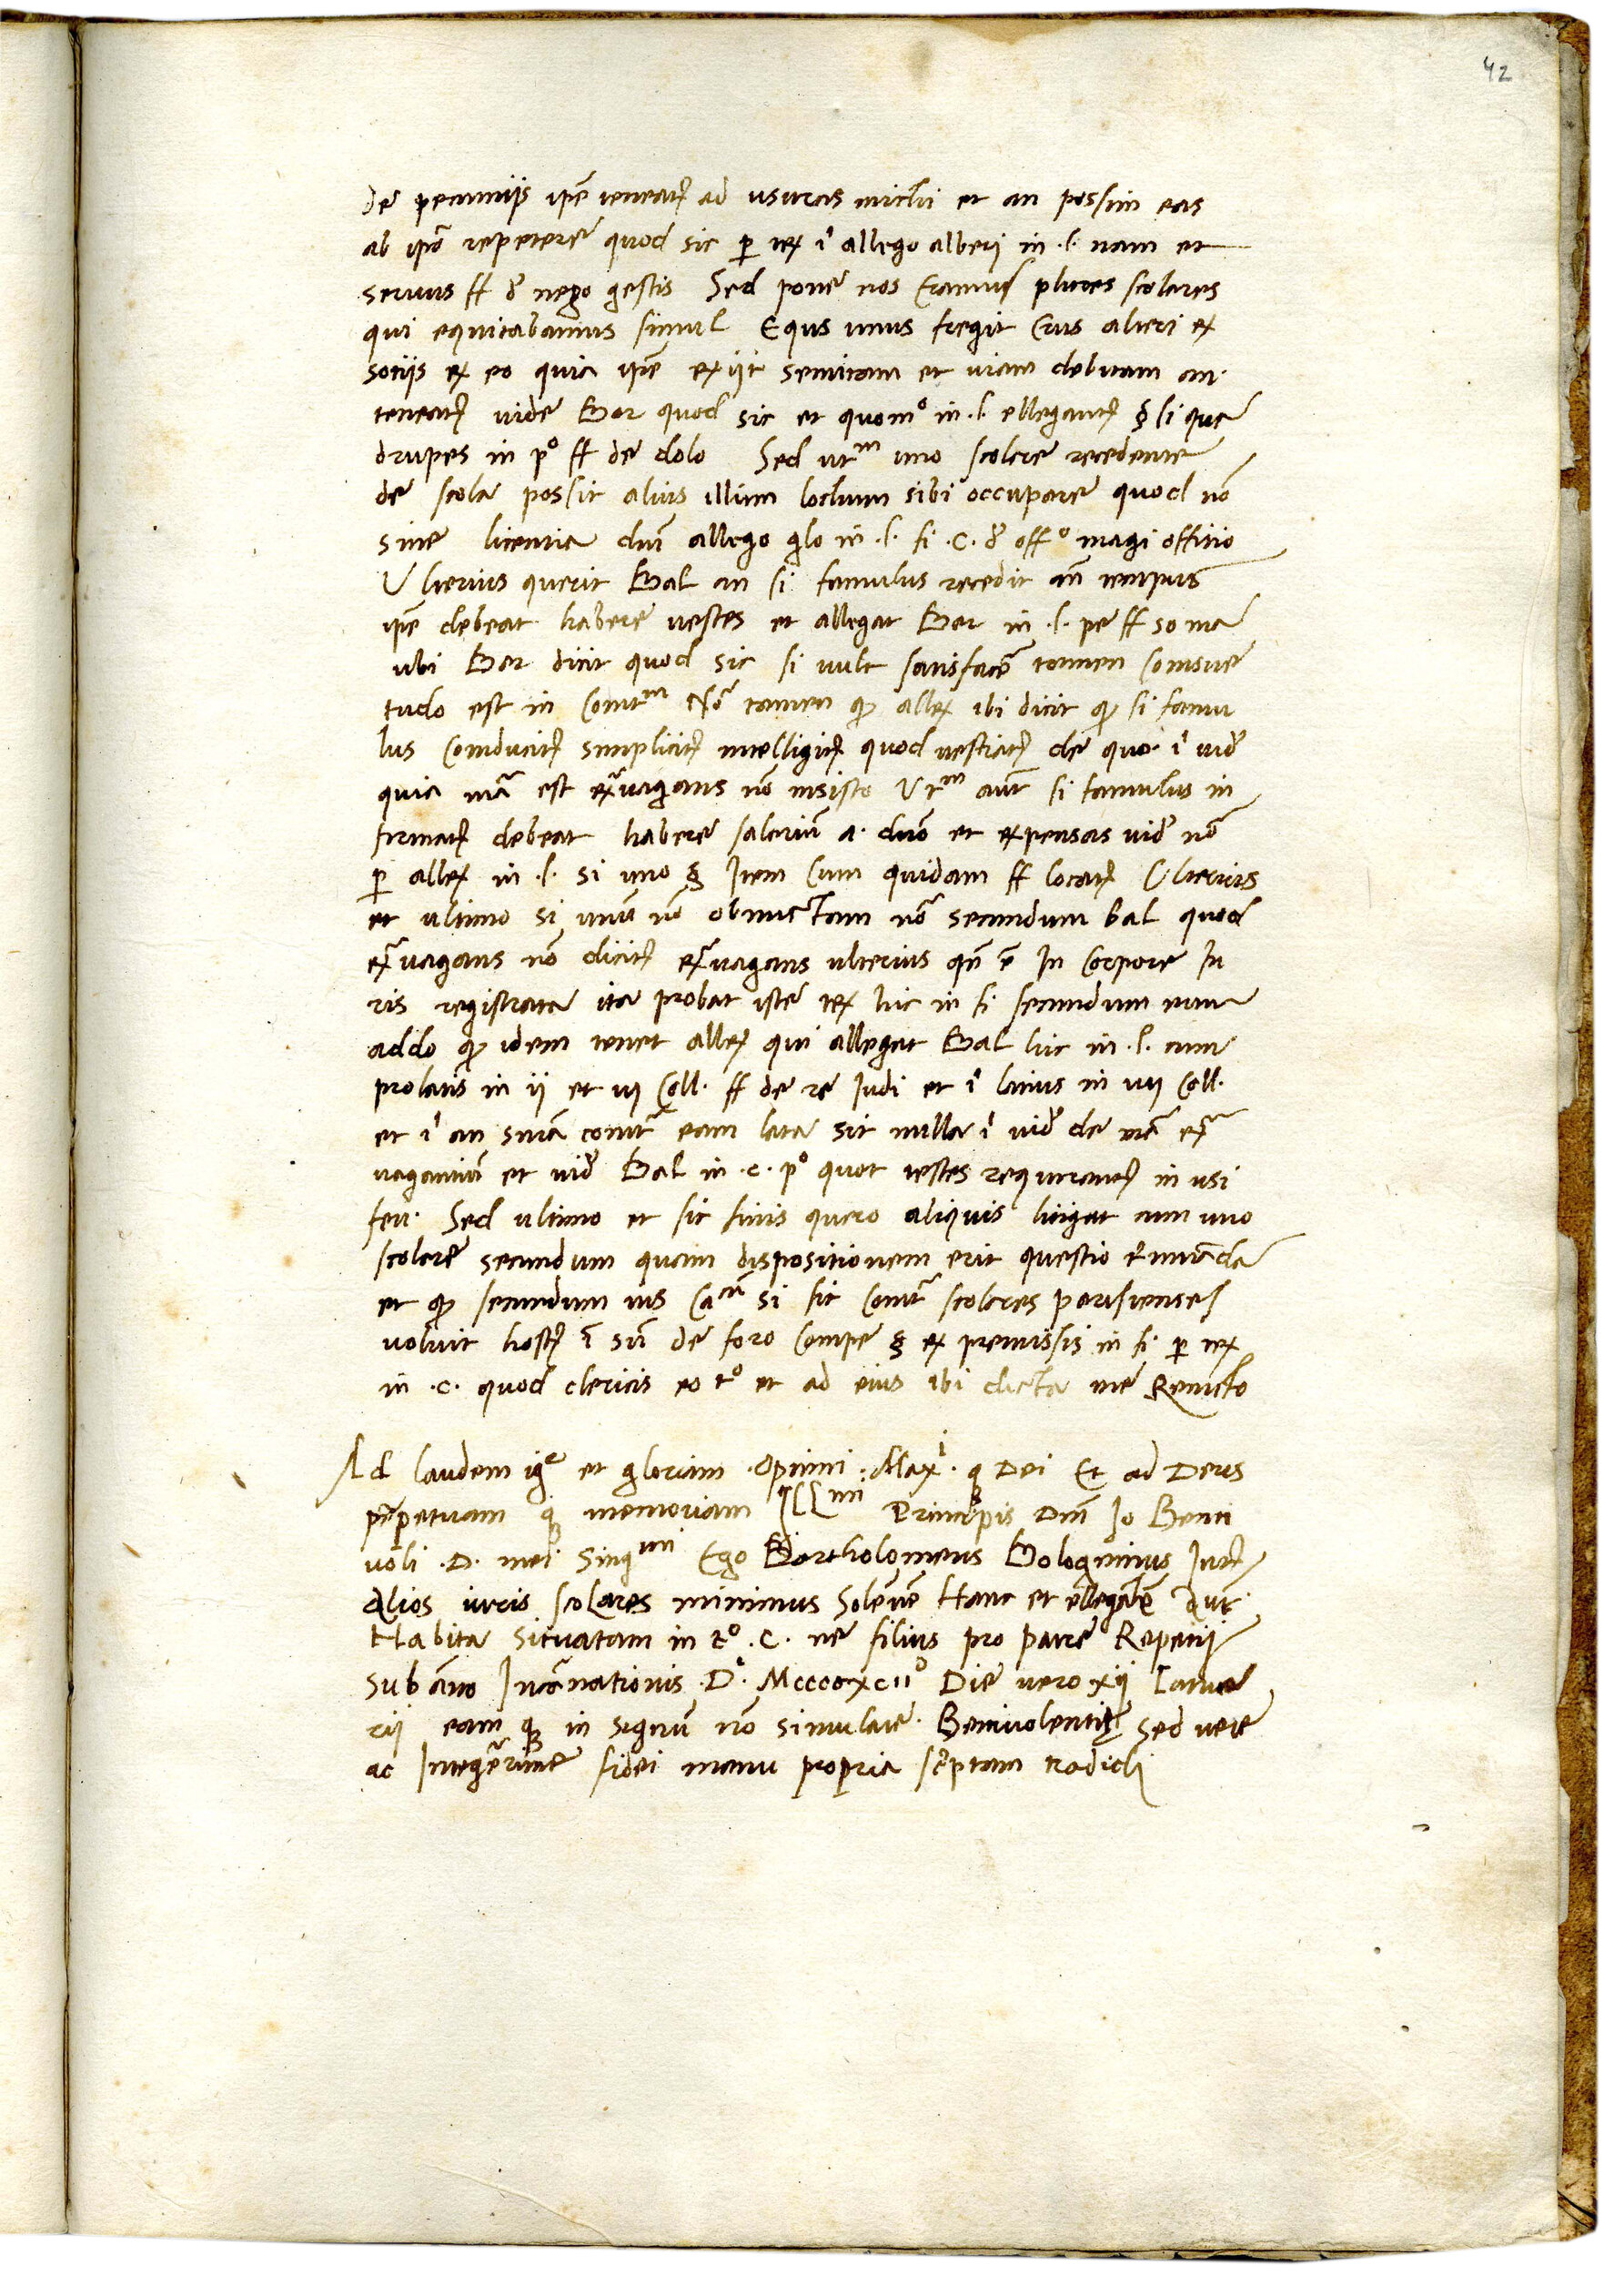 42
de pecuniis ip̄e teneat᷑ ad usuras michi et an possim eas
ab ip̄o repetere quod sic ꝑ tex ī allego alberi in .l. nam et
servus ff ð nego gestis Sed pone nos Eramus plures scolares
qui equitabamus simul Equs unus fregit Crus alteri ex
sotiis ex eo quia ip̄e exiit semitam et viam debitam an
teneat᷑ vide Bar quod sic et quomº in .l. ellegant᷑ § si qua
drupes in pº ff de dolo Sed utᵐ uno scolare recedente
de scola possit alius illum lochum sibi occupare quod nō
sine licentia dn̄i allego glo in .l. fi .C. ð offº magi offitio
Ulterius querit Bal an si famulus recedit an̄ tempus
ip̄e debeat habere vestes et allegat Bar in .l. pe ff so ma
ubi Bar dicit quod sic si vult satisfacē tamen Consue
tudo est in Contᵐ Nō tamen ꝙ allex ibi dicit ꝙ si famu
lus Conducit᷑ simplicit᷑ intelligit᷑ quod vestiat᷑ de quo ī vid̄
quia mā est ex̄vagans nō insisto Utᵐ aūt si famulus in
firmat᷑ debeat habere salariū a dn̄o et expensas vid̄ nō
ꝑ allex in .l. si uno § Item Cum quidam ff locat᷑ Ulterius
et ultimo si unū nō obmictam nō secundum bal quod
ex̄vagans nō dicit᷑ ex̄vagans ulterius qn̄ ē In Corpore Iu
ris registrata ita probat iste tex hic in fi secundum eum
addo ꝙ idem tenet allex qui allegat Bal hic in .l. cum
prolatis in ii et vi Coll. ff de re Iudi et ī latius in vii Coll.
et ī an sn̄ia cont̄ eam lata sit nulla ī vid̄ de mā ex̄
vagantiū et vid̄ Bal in .c. pº quot testes requirant᷑ in usi
feu. Sed ultimo et sic finis quero aliquis litigat cum uno
scolare secundum quam dispositionem erit questio t̄mināda
et ꝙ secundum ius Caᶜᵘ̄ si sit Cont̄ scolares parisienses
voluit host᷑ ī sū de foro Compe § ex premissis in fi ꝑ tex
in .c. quod clericis eo tº et ad eius ibi dicta me Remicto
Ad laudem igᵉ et gloriam .Optimi .Maxⁱ. q Dei Et ad Deus
perpetuam q memoriam Illᵐⁱ Principis Dn̄i Io Benti
voli .D. mei Singᵐⁱ Ego Bartholomeus Bologninus Int᷑
Alios iuris scolares minimus Solēnē Hanc et ellegātē Aut.
Habita Situatam in tº .C. ne filius pro patre Repetii
Sub āno Incānationis .Dᵉ. MccccxcIIº Die vero xii Ianua
rii eam q in signū nō simulate Benivolentie Sed vere
ac Inteḡrime fidei manu propria sc̄ptam tradidi